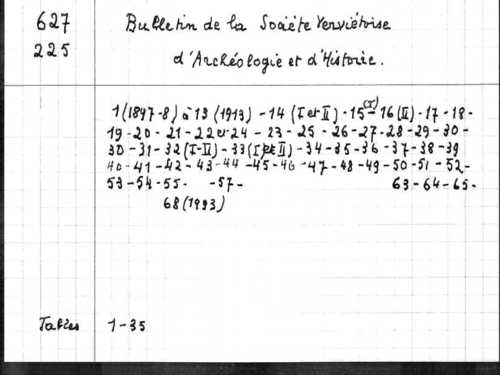 627 Bulletin de la Société Verviétoise
225 d'Archéologie et d'Histoire.
1 (1897-8) à 13 (1913) - 14 (I et II) - 15 (I) - 16 (II) - 17 - 18 -
19 - 20 - 21 - 22 et 24 - 23 - 25 - 26 - 27 - 28 - 29 - 30 -
30 - 31 - 32 (I-II) - 33 (I et II) - 34 - 35 - 36 - 37 - 38 - 39
40 - 41 - 42 - 43 - 44 - 45 - 46 - 47 - 48 - 49 - 50 - 51 - 52 -
53 - 54 - 55 - - 57 - 63 - 64 - 65 -
68 (1993)
Tables 1-35